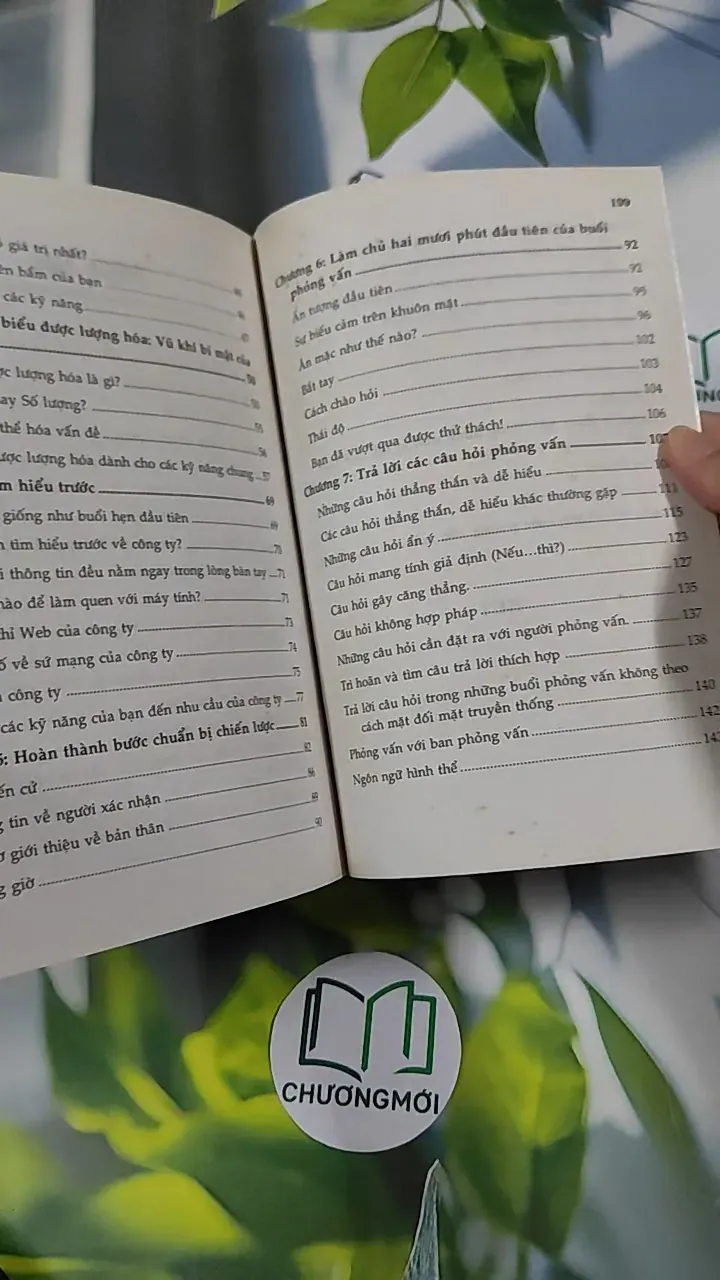 giá trị nhất?
bấm của bạn
các kỹ năng 47
biểu được lượng hóa: Vũ khí bí mật của
50
lượng hóa là gì?
ay Số lượng?
thể hóa vấn đề
lượng hóa dành cho các kỹ năng chung 57
m hiểu trước 69
giống như buổi hẹn đầu tiên 69
tìm hiểu trước về công ty?
thông tin đều nằm ngay trong lòng bàn tay 71
nào để làm quen với máy tính? 71
Web của công ty 73
về sứ mạng của công ty 74
công ty 75
các kỹ năng của bạn đến nhu cầu của công ty 77
5: Hoàn thành bước chuẩn bị chiến lược 81
cử 82
tin về người xác nhận 86
giới thiệu về bản thân 89
giờ 90
199
Chương 6: Làm chủ hai mươi phút đầu tiên của buổi
phỏng vấn 92
Ấn tượng đầu tiên 92
Sự biểu cảm trên khuôn mặt 95
Ăn mặc như thế nào? 96
Bắt tay 102
Cách chào hỏi 103
Thái độ 104
Bạn đã vượt qua được thử thách! 106
Chương 7: Trả lời các câu hỏi phỏng vấn
Những câu hỏi thẳng thắn và dễ hiểu
Các câu hỏi thẳng thắn, dễ hiểu khác thường gặp 111
Những câu hỏi ẩn ý 115
Câu hỏi mang tính giả định (Nếu...thì?) 123
Câu hỏi gây căng thẳng. 127
Câu hỏi không hợp pháp 135
Những câu hỏi cần đặt ra với người phỏng vấn. 137
Trì hoãn và tìm câu trả lời thích hợp 138
Trả lời câu hỏi trong những buổi phỏng vấn không theo
cách mặt đối mặt truyền thống 140
Phỏng vấn với ban phỏng vấn 142
Ngôn ngữ hình thể
CHƯƠNGMỚI